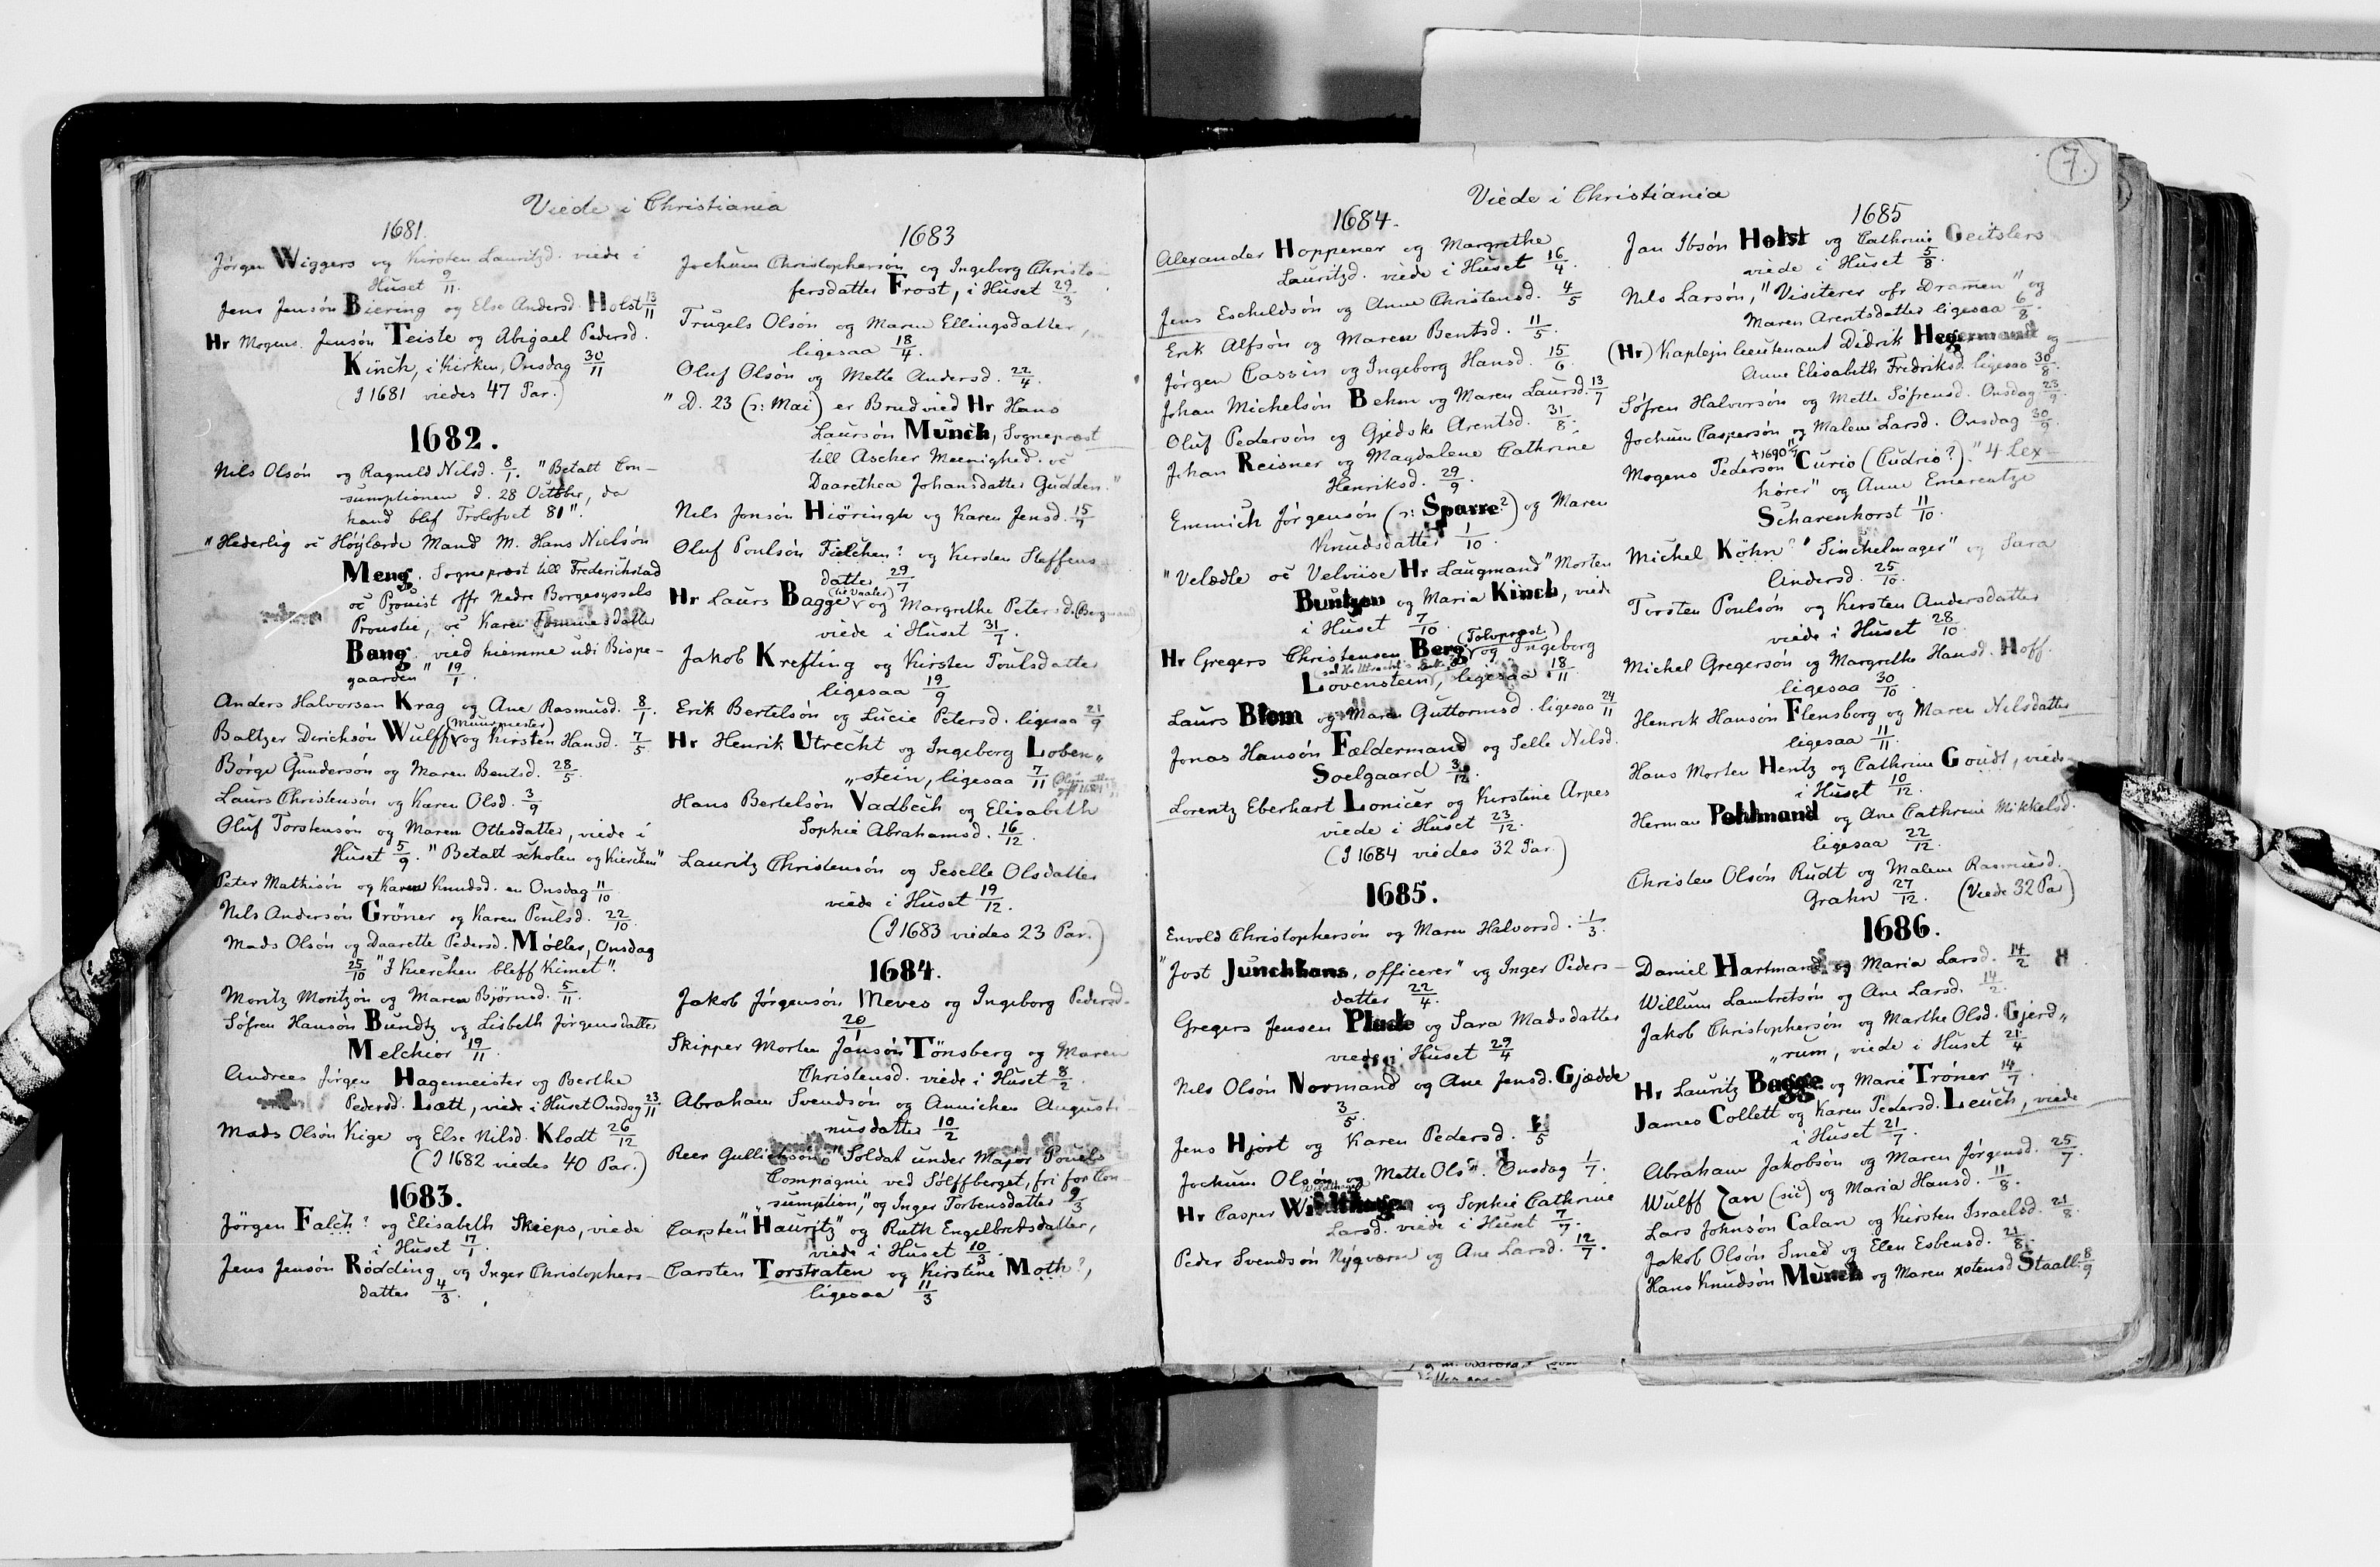 Viede i Christiania
1681.
Jørgen Wiggers og Kirsten Lauritzd. viede i
Huset 9/11.
Jens Jensøn Biering og Else Andersd. Holst 13/11
Hr Mogens Jensøn Teiste og Abigael Pedersd.
Kinch, i Kirken, Onsdag 30/11
(I 1681 viedes 47 Par.)
1682.
Nils Olsøn og Ragnild Nilsd. 8/1. "Betalt Con-
sumptionen d. 28 October, da
hand blef Trolofvet 81".
"Hederlig oc Höylærde Mand M. Hans Nielsøn
Meng. Sognepræst till Frederichstad
oc Prouist offr Nedre Borgesyssels
Proustie, oc Karen Tommesdatter
Bang vied hiemme udi Bispe-
gaarden" 19/1.
Anders Halvorsen Krag og Ane Rasmusd. 8/1.
Baltzer Dirichsøn Wulff (Muurmester) og Kirsten Hansd. 7/5
Børge Gundersøn og Maren Bentsd. 28/5.
Laurs Christensøn og Karen Olsd. 3/9
Oluf Torstensøn og Maren Ottesdatter, viede i
Huset 5/9. "Betalt scholen og Kierchen"
Peter Mathisøn og Karen Knudsd. en Onsdag 11/10
Nils Andersøn Gröner og Karen Poulsd. 22/10.
Mads Olsøn og Daarette Pedersd. Møller, Onsdag
25/10 "I Kierchen bleff Kimet".
Moritz Moritzøn og Maren Bjørnsd. 5/11.
Søfren Hansøn Bundtz og Lisbeth Jørgensdatter
Melchior 19/11.
Andrees Jørgen Hagemeister og Berthe
Pedersd. Lætt, viede i Huset Onsdag 23/11
Mads Olsøn Kige og Else Nilsd. Klodt 26/12
(I 1682 viedes 40 Par.)
1683.
Jörgen Falch? og Elisabeth Skieps, viede
i Huset 17/1.
Jens Jensøn Rödding og Inger Christophers-
datter 4/3.
1683
Jochum Christophersøn og Ingeborg Christo-
fersdatter Frost, i Huset 29/3.
Trugels Olsøn og Maren Ellingsdatter,
ligesaa 18/4.
Oluf Olsøn og Mette Andersd. 22/4.
"D. 23 (ɔ: Mai) er Brudvied Hr Hans
Laursøn Munch, Sognepræst
till Ascher Meenighed. oc
Daarethea Johansdatter Gudden."
Nils Jonsøn Hiöringh og Karen Jensd. 15/7
Oluf Poulsøn Fielchen? og Kirsten Steffens
datter 29/7
Hr Laurs Bagge (til Vaaler) og Margrethe Petersd. (Bergmand)
viede i Huset 31/7.
Jakob Krefting og Kirsten Toulsdatter
ligesaa 19/9
Erik Bertelsøn og Lucie Petersd. ligesaa 21/9
Hr Henrik Utrecht og Ingeborg Loben„
„stein, ligesaa 7/11
Hans Bertelsøn Vadbech og Elisabeth
Sophie Abrahamsd. 16/12.
Lauritz Christensøn og Seselle Olsdatter
viede i Huset 19/12.
(I 1683 viedes 23 Par.)
1684.
Jakob Jørgensøn Meves og Ingeborg Pedersd.
20/1
Skipper Morten Jansøn Tönsberg og Maren
Christensd. viede i Huset 8/2.
Abraham Svendsøn og Annichen Augusti-
nusdatter 10/2
Reer Gullichsøn, "Soldat under Major Pouels
Compagnie ved Sølffberget, fri for Con-
sumption," og Inger Torbensdatter 9/3
Carsten "Hauritz" og Ruth Engelbretsdatter,
viede i Huset 10/3.
Carsten Torstraten og Kirstine Moth?,
ligesaa 11/3
7.
Viede i Christiania
1684.
Alexander Hoppener og Margrethe
Lauritzd. viede i Huset 16/4.
Jens Escheldsøn og Anne Christensd. 4/5
Erik Alfsøn og Maren Bentsd. 11/5.
Jørgen Cassin og Ingeborg Hansd. 15/6
Johan Michelsøn Behm og Maren Laursd. 13/7
Oluf Pedersøn og Gjedske Arentsd. 31/8.
Johan Reisner og Magdalene Cathrine
Henriksd. 29/9.
Emmich Jørgensøn (ɔ: Sparre?) og Maren
Knudsdatter 1/10.
"Velædle oc Velviise Hr Laugmand" Morten
Buntzen og Maria Kinch, viede
i Huset 7/10.
Hr Gregers Christensen Berg (Tolvpræst.) og Ingeborg
Lovenstein, ligesaa 18/11
Laurs Blom og Maren Guttormsd. ligesaa 24/11
Jonas Hansøn Fældermand og Selle Nilsd.
Soelgaard 3/12.
Lorentz Eberhart Lonicer og Kirstine Arpes
viede i Huset 23/12.
(I 1684 viedes 32 Par.)
1685.
Envold Christophersøn og Maren Halvorsd. 1/3.
"Jost Junchhans, officerer" og Inger Peders-
datter 22/4.
Gregers Jensen Plade og Sara Madsdatter
viede i Huset 29/4
Nils Olsøn Normand og Ane Jensd. Gjædde
3/5.
Jens Hjort og Karen Pedersd.
Jochum Olsøn og Mette Olsd. Onsdag 1/7.
Hr Casper Wildthagen og Sophie Cathrine
Larsd. viede i Huset 7/7.
Peder Svendsøn Nyqværn og Ane Larsd. 12/7.
1685
Jan Ibsøn Holst og Cathrine Geitslers
viede i Huset 5/8.
Nils Larsøn, "Visiterer ofr Dramen" og
Maren Arentsdatter ligesaa 6/8.
(Hr) Kaptejnlieutenant Didrik Hegermandt og
Anne Elisabeth Fredriksd. ligesaa 30/8.
Søfren Halvorsøn og Mette Söfrensd. Onsdag 23/9.
Jochum Caspersøn og Malene Larsd. Onsdag 30/9.
Mogens Pedersøn Curio (Cudrio?). "4 Lex-
hörer" og Anne Emerentze
Scharenhorst 11/10.
Michel Köhn? "Sinckelmager" og Sara
Andersd. 25/10.
Torsten Poulsøn og Kirsten Andersdatter
viede i Huset 28/10.
Michel Gregersøn og Margrethe Hansd. Hoff.
ligesaa 30/10.
Henrik Hansøn Flensborg og Maren Nilsdatter
ligesaa 11/11.
Hans Morten Hentz og Cathrine Goudt, viede
i Huset 10/12.
Herman Pohlmand og Ane Cathrine Mikkelsd.
ligesaa 22/12.
Christen Olsøn Rudt og Malene Rasmusd.
Grahn 27/12. (Viede 32 Par)
1686.
Daniel Hartmand og Maria Larsd. 14/2
Willum Lambretsøn og Ane Larsd. 14/2.
Jakob Christophersøn og Marthe Olsd. Gjerd„
„rum, viede i Huset 21/4
Hr Lauritz Bagge og Marie Tröner 14/7.
James Collett og Karen Pedersd. Leuch, viede
i Huset 21/7.
Abraham Jakobsøn og Maren Jørgensd. 25/7.
Wulff Zan (sic) og Maria Hansd. 11/8.
Lars Johnsøn Calan og Kirsten Israelsd. 21/8.
Jakob Olsøn Smed og Elen Esbensd. 21/8.
Hans Knudsøn Munch og Maren xstensd Staall. 8/9